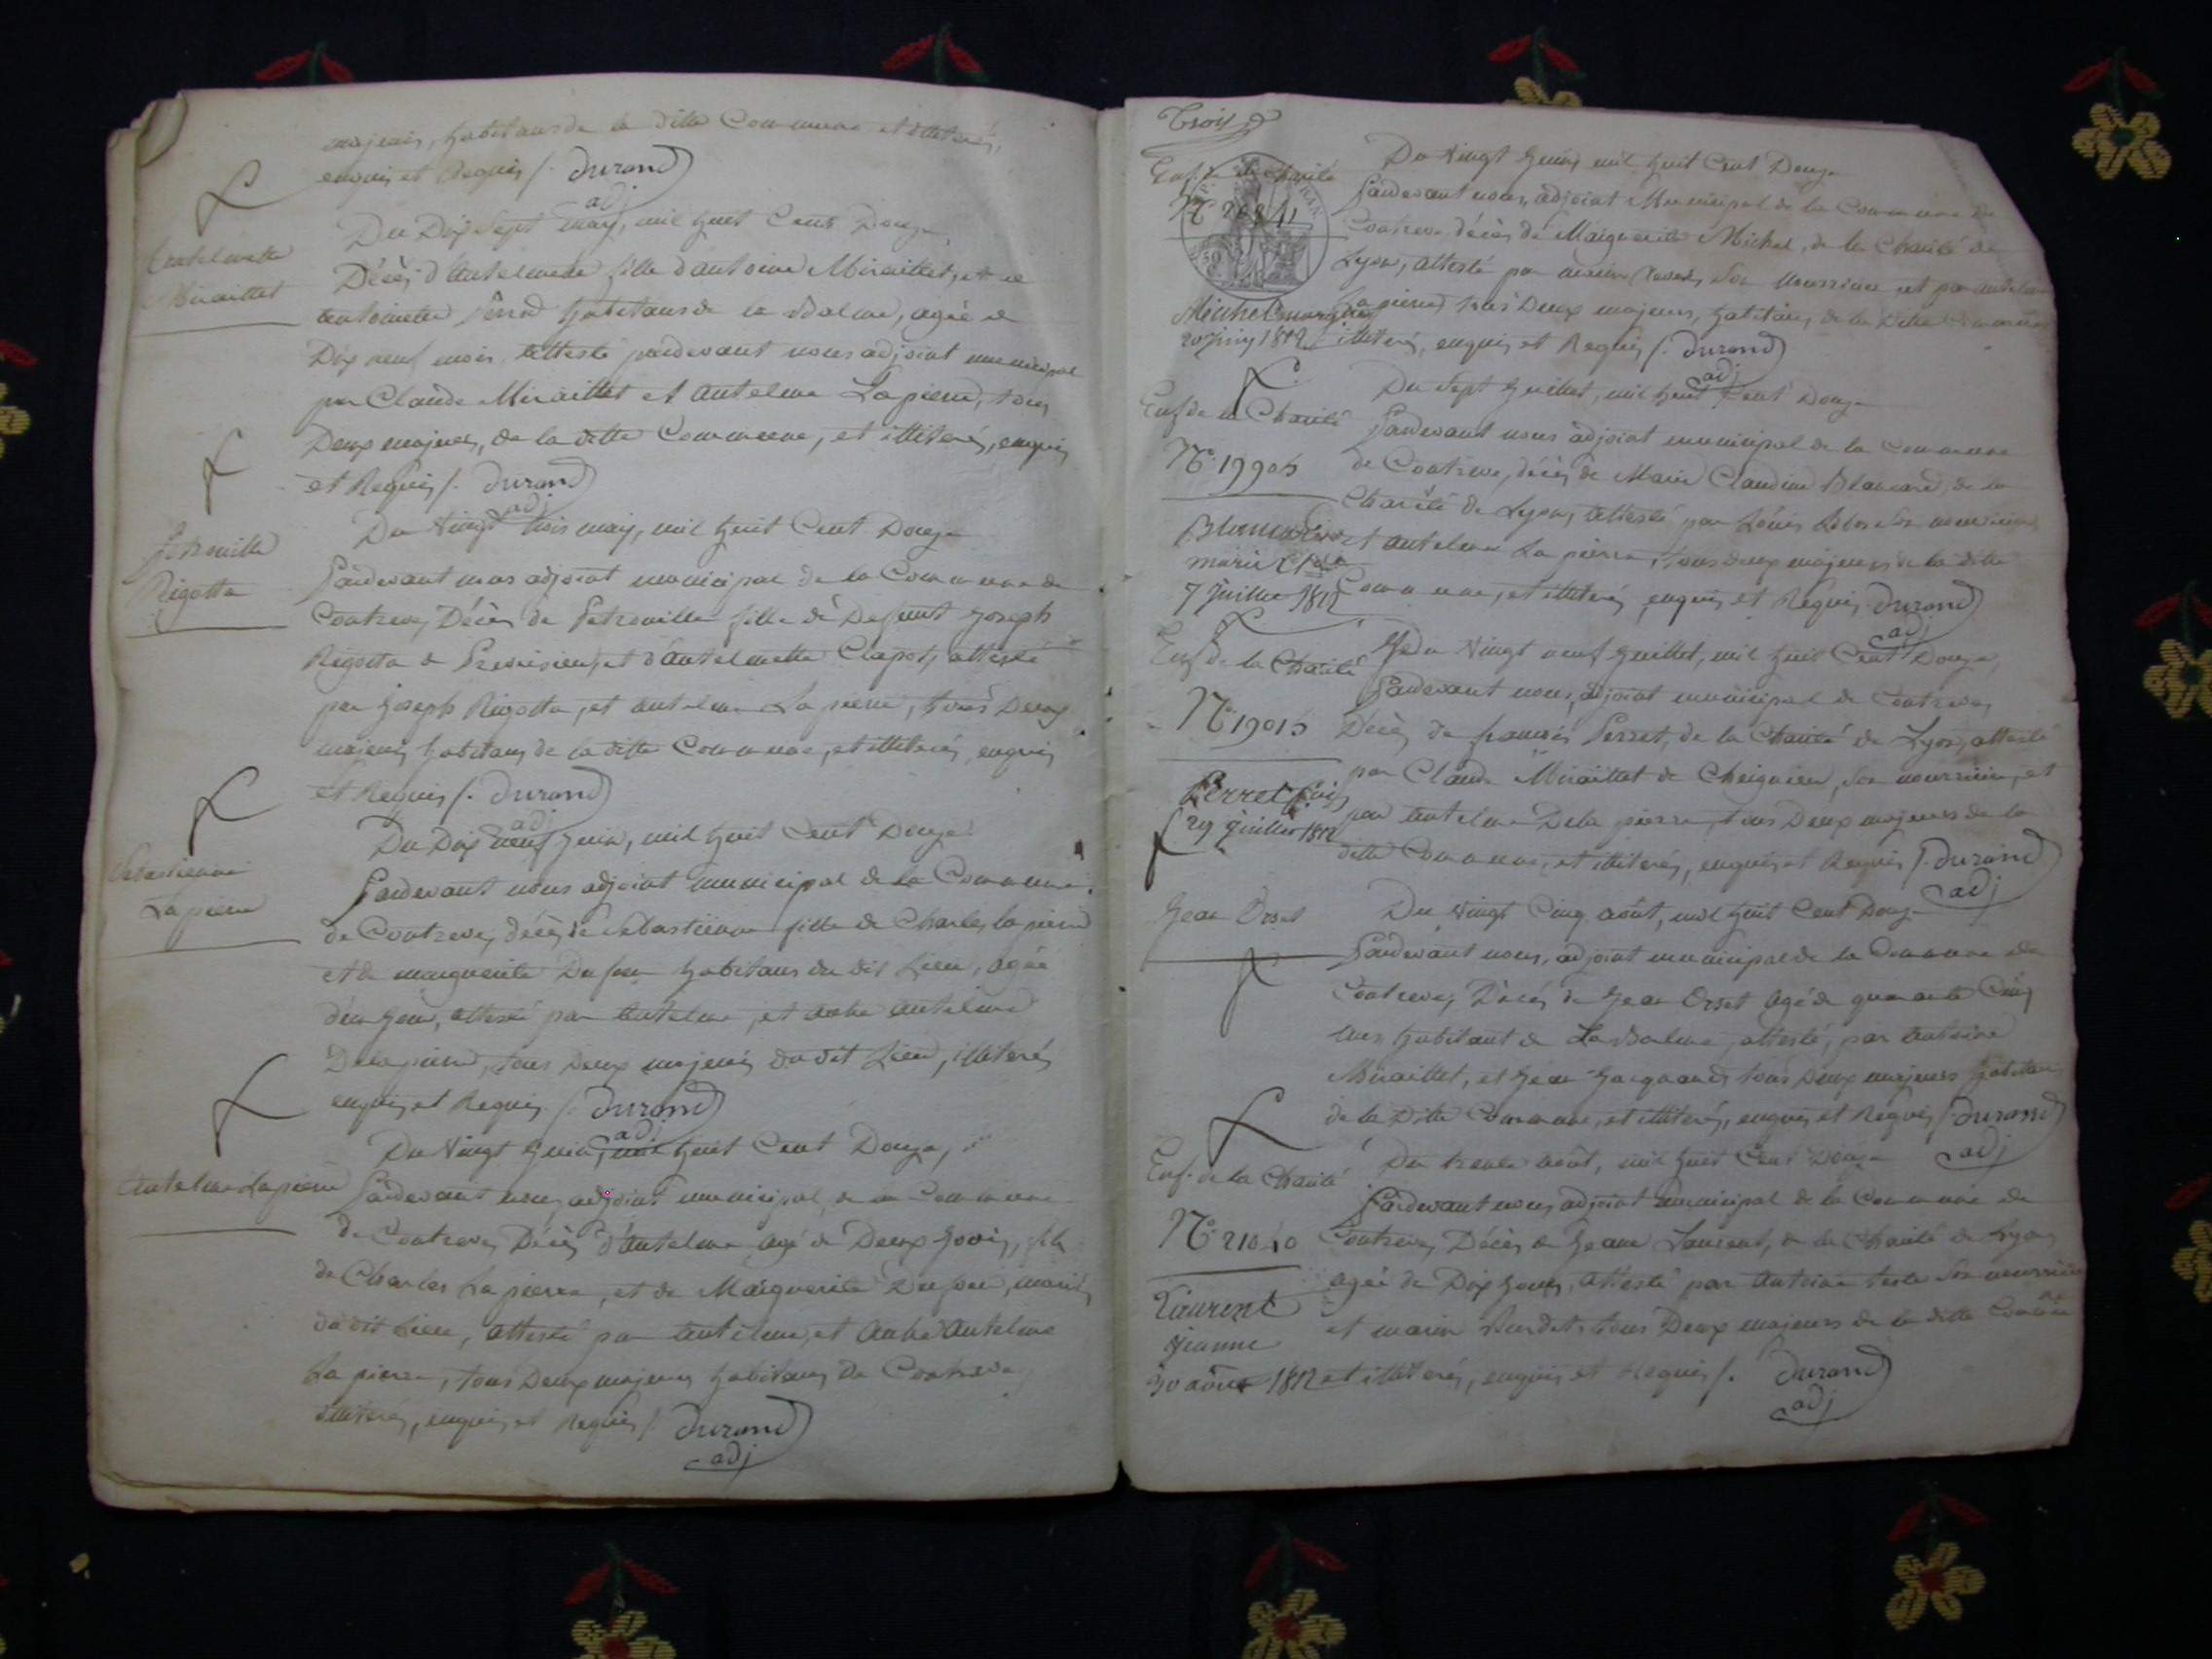 majeurs, habitans de la ditte Commune et illiterés,
enquis et Requis /. durand
adj
Antelmette
Miraillet
Du Dix Sept may, mil huit Cent Douze
Décès d'Antelmette fille d'antoine Miraillet, et de
antoinette habitans de la Balme, agée de
Dix neuf mois attesté pardevant nous adjoint municipal
par Claude Miraillet et antelme Lapierre, tous
Deux majeurs, de la ditte Commune, et illiterés, enquis
et Requis /. durand
adj
Petronille
Rigotta
Du Vingt trois may, mil huit Cent Douze
Pardevant nous adjoint municipal de la Commune de
Contrevoz, Décès de Petronille fille de Defunt Joseph
Rigotta de et d'antelmette Clapot, attesté
par Joseph Rigotta, et antelme La pierre, tous Deux
majeurs habitans de la ditte Commune, et illiterés, enquis
et Requis /. durand
adj
Sebastienne
La pierre
Du Dix neuf Juin, mil huit Cent Douze
Pardevant nous adjoint municipal de la Commune
de Contrevoz, décès de Sebastienne fille de Charles la pierre
et de marguerite Dufour habitans du dit Lieu, agée
d'un Jour, attesté par antelme, et autre antelme
Delapierre, tous Deux majeurs du dit Lieu, illiterés
enquis et Requis /. durand
adj
Antelme Lapierre
Du Vingt Juin, mil huit Cent Douze,
Pardevant nous adjoint municipal, de la Commune
de Contrevoz, Décès d'antelme agé de Deux Jours, fils
de Charles La pierre, et de Marguerite Dufour, mariés
du dit Lieu, attesté par antelme, et autre antelme
La pierre, tous Deux majeurs habitans de Contrevoz
illiterés, enquis et Requis /. durand
adj
Trois
Enf. de la Charité
Michel marguerite
20 juin 1812
Du Vingt Juin, mil huit Cent Douze
Pardevant nous, adjoint Municipal de la Commune de
Contrevoz décès de Marguerite Michel, de la Charité de
Lyon, attesté par son nourricier et par antelme
Lapierre, tous Deux majeurs, habitans de la ditte Commune
illiterés, enquis et Requis /. durand
adj
Enf de la Charité
N° 19905
marie Cl
7 Juillet 1812
Du Sept Juillet, mil huit Cent Douze
Pardevant nous adjoint municipal de la Commune
de Contrevoz, décès de Marie Claudine Blancard, de la
Charité de Lyon, attesté par son nourricier
et antelme La pierre, tous deux majeurs de la ditte
Commune, et illiterés, enquis et Requis. durand
adj
Enf de la Charité
N° 19015
Perret fois
29 Juillet 1812
Du Vingt neuf Juillet, mil huit Cent Douze,
Pardevant nous, adjoint municipal de Contrevoz
Décès de françois Perret, de la Charité de Lyon, attesté
par Claude Miraillet de Cheignieu, son nourricier, et
par antelme Dela pierre, tous Deux majeurs de la
ditte Commune, et illiterés, enquis et Requis /. durand
adj
Jean Orset
Du Vingt Cinq août, mil huit Cent Douze
Pardevant nous, adjoint municipal de la Commune de
Contrevoz, Décès de Jean Orset agé de quarante Cinq
ans, habitant de La Balme, attesté, par antoine
Miraillet, et Jean Jacquand tous Deux majeurs habitans
de la Ditte Commune, et illiterés, enquis et Requis /. durand
adj
Enf. de la Charité
N° 21040
Laurent
Jeanne
30 août 1812
Du trente août, mil huit Cent Douze
Pardevant nous, adjoint municipal de la Commune de
Contrevoz, Décès de Jeanne Laurent, de la Charité de Lyon
agée de Dix Jours, attesté par antoine teste son nourricier
et marin tous Deux majeurs de la ditte Comune
et illiterés, enquis et Requis /. durand
adj